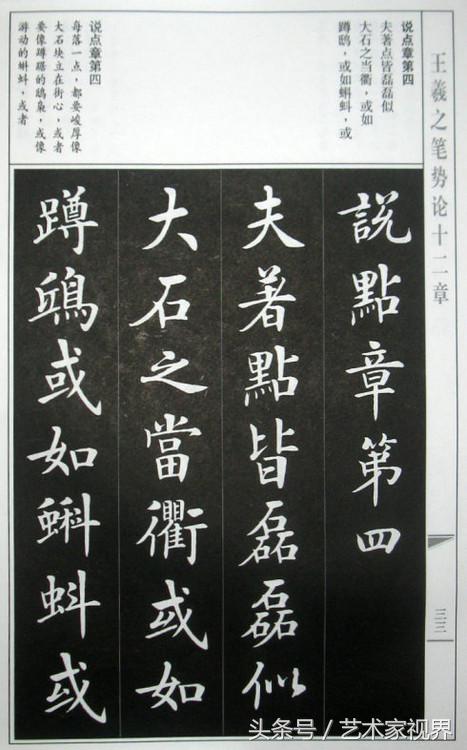 王羲之笔势论十二章
说点章第四
夫著点皆磊磊似
大石之当衢，或如
蹲鸱，或如蝌蚪，或
说点章第四
每落一点，都要峻厚像
大石块立在街心，或者
要像蹲踞的鸱枭，或像
游动的蝌蚪，或者
說點章第四
夫著點皆磊磊似
大石之當衢或如
蹲鴟或如蝌蚪或
三三
头条号／艺术家视界